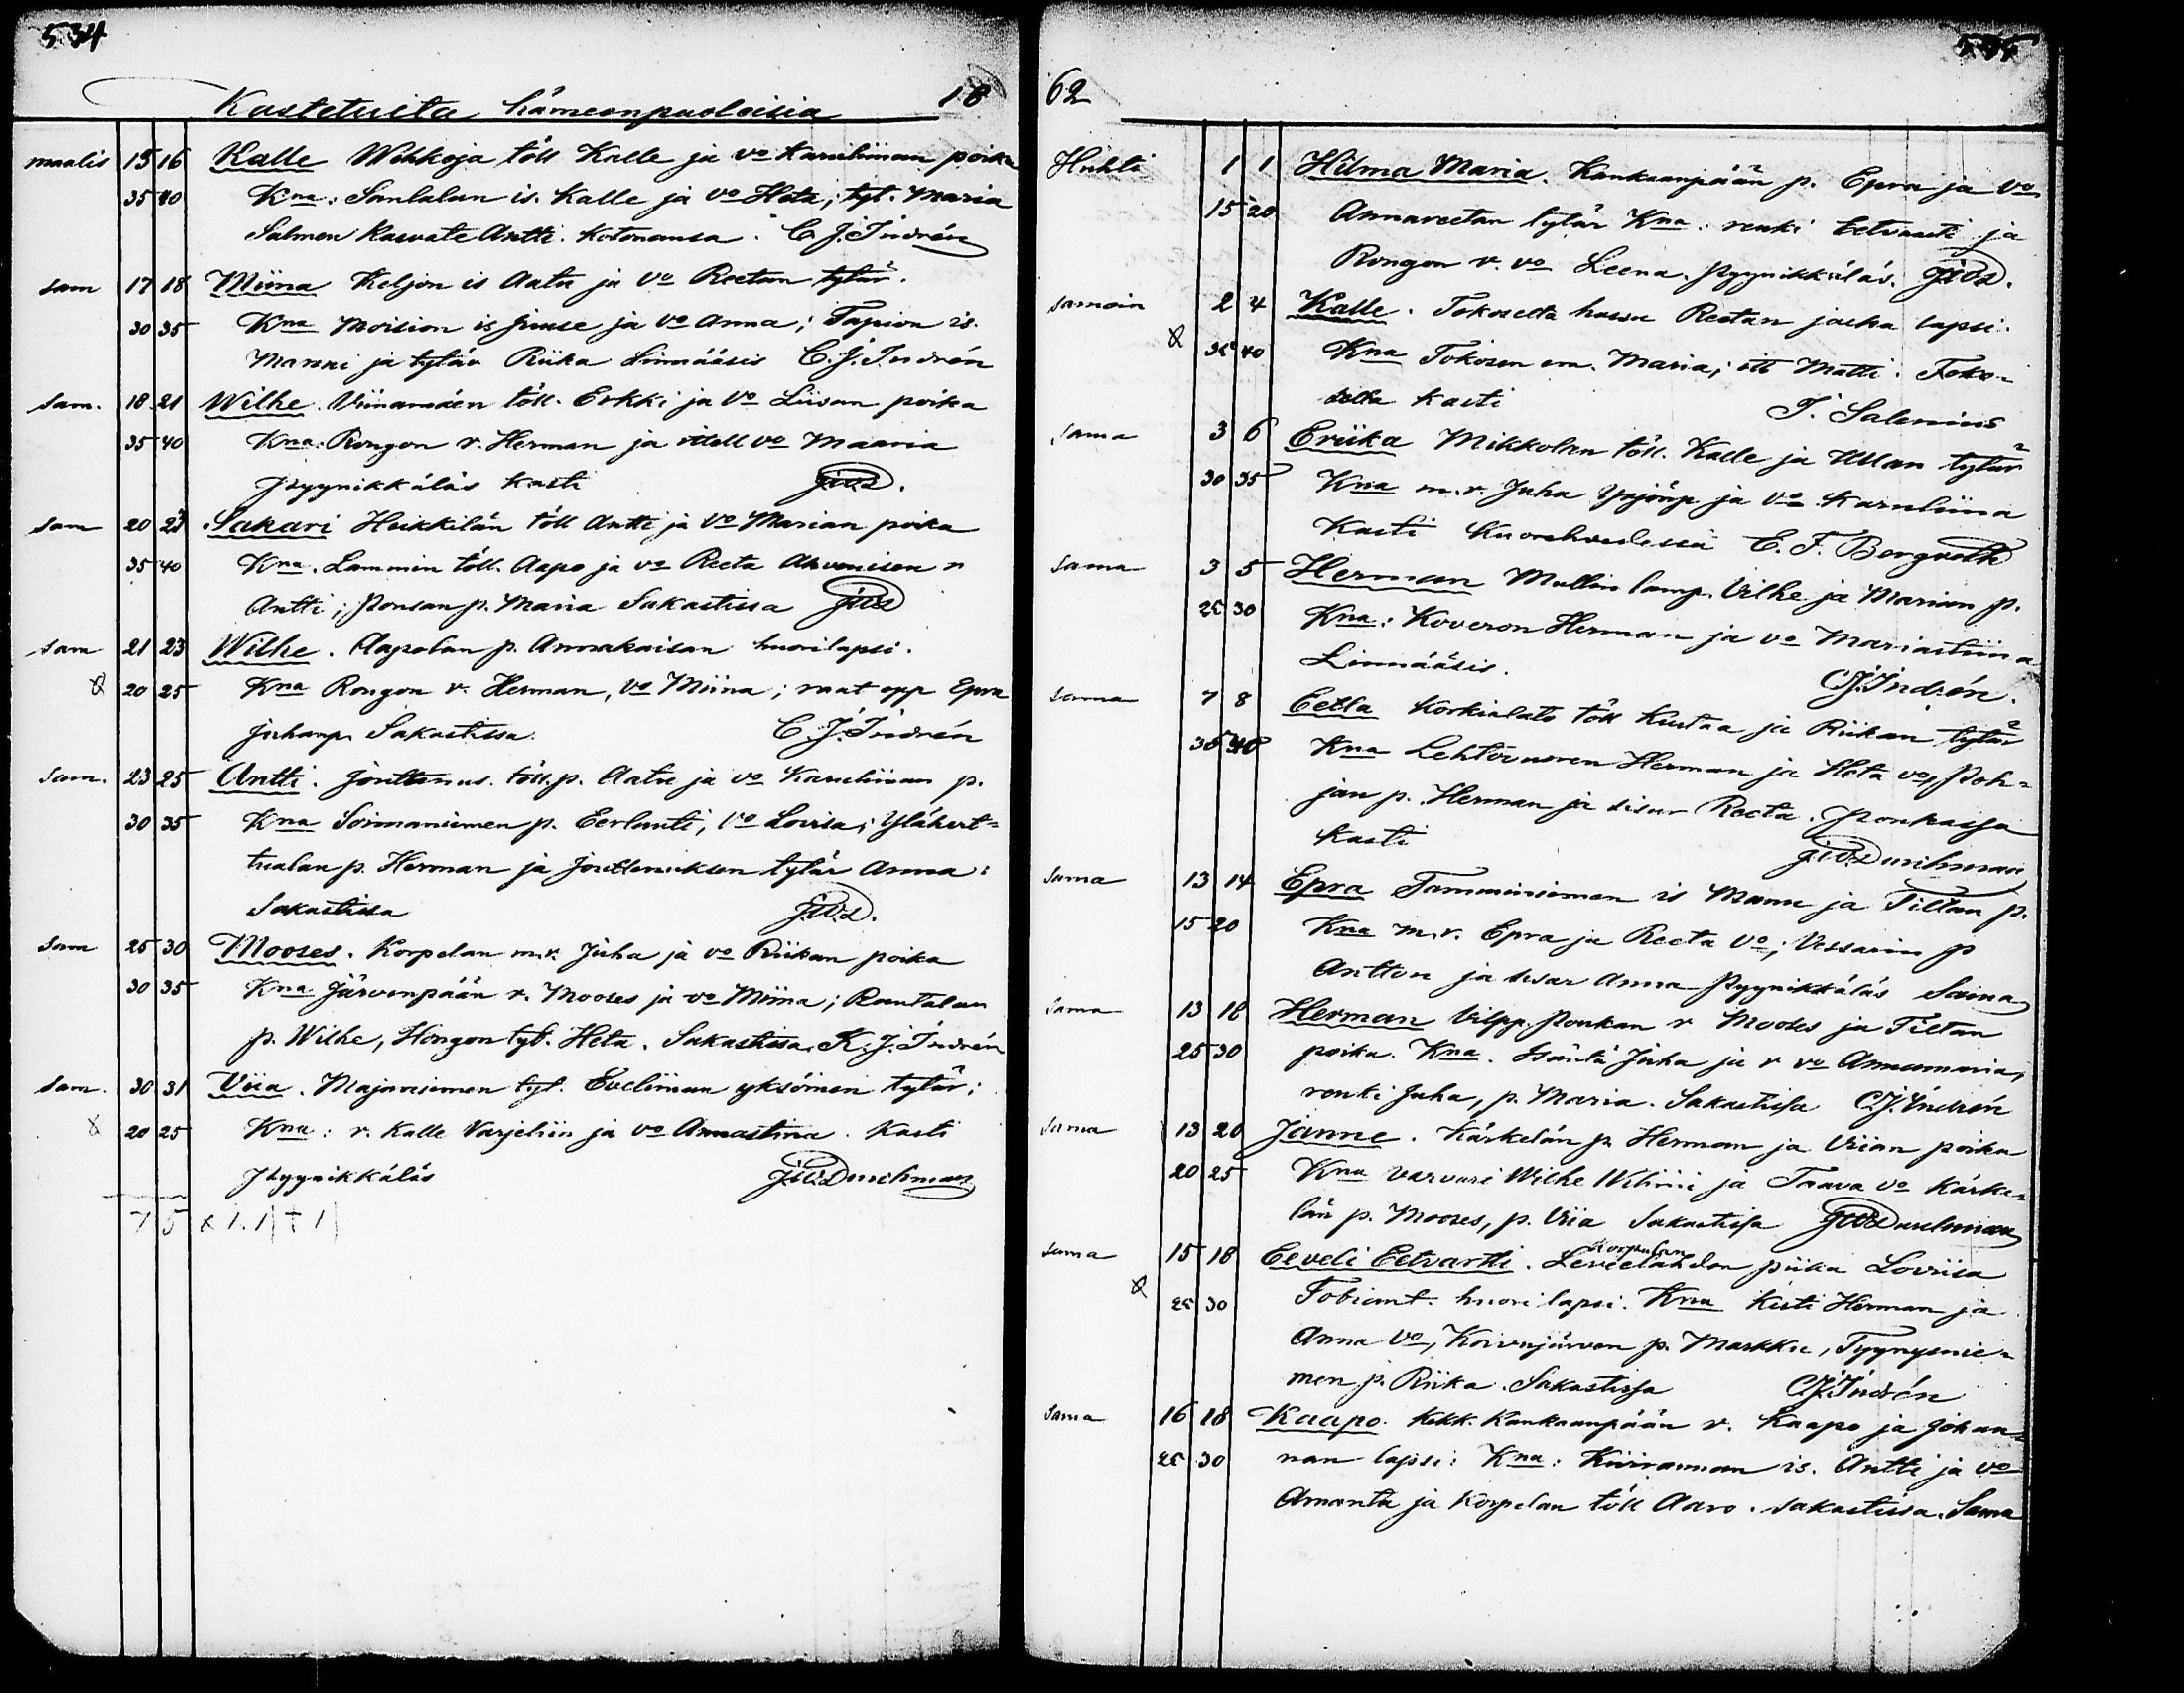 534
Kastetuita hämeenpuoleisia 18
maalis 15 16 Kalle Wihkoja töll Kalle ja vo Karuliinan poika
35 40 Kna: Santalan is. Kalle ja vo Heta; tyt. Maria
Salmen kasvate Antti. Kotonansa. C. J. Indrén
sam 17 18 Miina Keljon is Aatu ja vo Reetan tytär.
30 35 Kna Moision is Juuse ja vo Anna; Tapion is.
Manni ja tytär Riika Linnääsis C. J. Indrén
sam. 18 21 Wilhe. Viinamäen töll. Erkki ja vo Liisan poika
35 40 Kna: Rongon r. Herman ja itell vo Maaria
Pyynikkäläs kasti JWD.
sam 20 23 Sakari Heikkilän töll Antti ja vo Marian poika
35 40 Kna. Lammin töll. Aapo ja vo Reeta Ahvenisen r
Antti; Pousan p. Maria Sakastissa JWD
sam 21 23 Wilhe. Aapolan p. Annakaisan huorilapsi.
20 25 Kna Rongon r. Herman, vo Miina; raat opp Epra
Juhanp. Sakastissa. C. J. Indrén
Sam. 23 25 Antti. Jouttenus. töll. p. Aatu ja vo Karuliinan p.
30 35 Kna Soinmansimen p. Eerlanti, vo Lovisa; Ylähert=
tualan p. Herman ja Jouttenuksen tytär Anna:
Sakastissa JWD.
Sam 25 30 Mooses. Korpelan m.r. Juha ja vo Riikan poika
30 35 Kna Järvenpään r. Mooses ja vo Miina; Rantalan
p. Wilhe, Hongon tyt. Heta. Sakastissa. K. J. Indrén
Sam. 30 31 Viia. Majaniemen tyt. Eveliinan yksöinen tytär:
20 25 Kna: r. Kalle Varjeliin ja vo Annastina. Kasti
Pyynikkäläs JWDurchman
7 5 x 1.1| † 1|
62
Huhti 1 1 Hilma Maria. Kankaanpään p. Epra ja vo
15 20 Annareetan tytär Kna: renki Eetvartti ja
Rongon r. vo Leena. Pyynikkäläs. JWD.
samoin 2 4 Kalle. Tokoselta huora Reetan jalka lapsi.
35 40 Kna Tokosen em. Maria; itt Matti. Toko-
selta kasti T. Salenius
Sama 3 6 Eriika Mikkolan töll. Kalle ja Ullan tytär
30 35 Kna m.r. Juha Yrjönp ja vo Karuliina
Kasti Kuorehvedessä C. F. Bergroth
Sama 3 5 Herman Mullin lamp. Vilhe ja Marian p.
25 30 Kna: Koveron Herman ja vo Mariastiina
Linnääsis. CJIndrén.
Sama 7 8 Eetla Korkialato töll Kustaa ja Riikan tytär
35 40 Kna Lehtovuoren Herman ja Heta vo, Poh=
jan p. Herman ja sisar Reeta. Ponkassa
kasti JWDurchman
Sama 13 14 Epra Tamminiemen is Manu ja Tiltan p.
15 20 Kna m.r. Epra ja Reeta vo; Vessarin p
Antton ja sisar Anna Pyynikkäläs Sama
Sama 13 18 Herman Vilpp. Poukan r Mooses ja Tiltan
25 30 poika. Kna. Isäntä Juha ja r vo Annamaria,
renki Juha, p. Maria. Sakastissa CJ. Indrén
Sama 13 20 Janne. Kärkelän p. Herman ja Viian poika
20 25 Kna varvari Wilhe Wiliini ja Taava vo Kärke=
län p. Mooses, p. Viia Sakastissa JWDurchman
Sama 15 18 Eeveli Eetvartti. Leveelahden piika Loviisa
25 30 Tobiant. huorilapsi. Kna Kisti Herman ja
Anna vo, Koivujärven p. Markku, Tyynysnie=
men p. Riika. Sakastissa CJ. Indrén
Sama 16 18 Kaapo. Kekk. Kankaanpään r. Kaapo ja Johan=
25 30 nan lapsi: Kna: Kiiranman is. Antti ja vo
Amanta ja Korpelan töll Aaro. Sakastissa. Sama